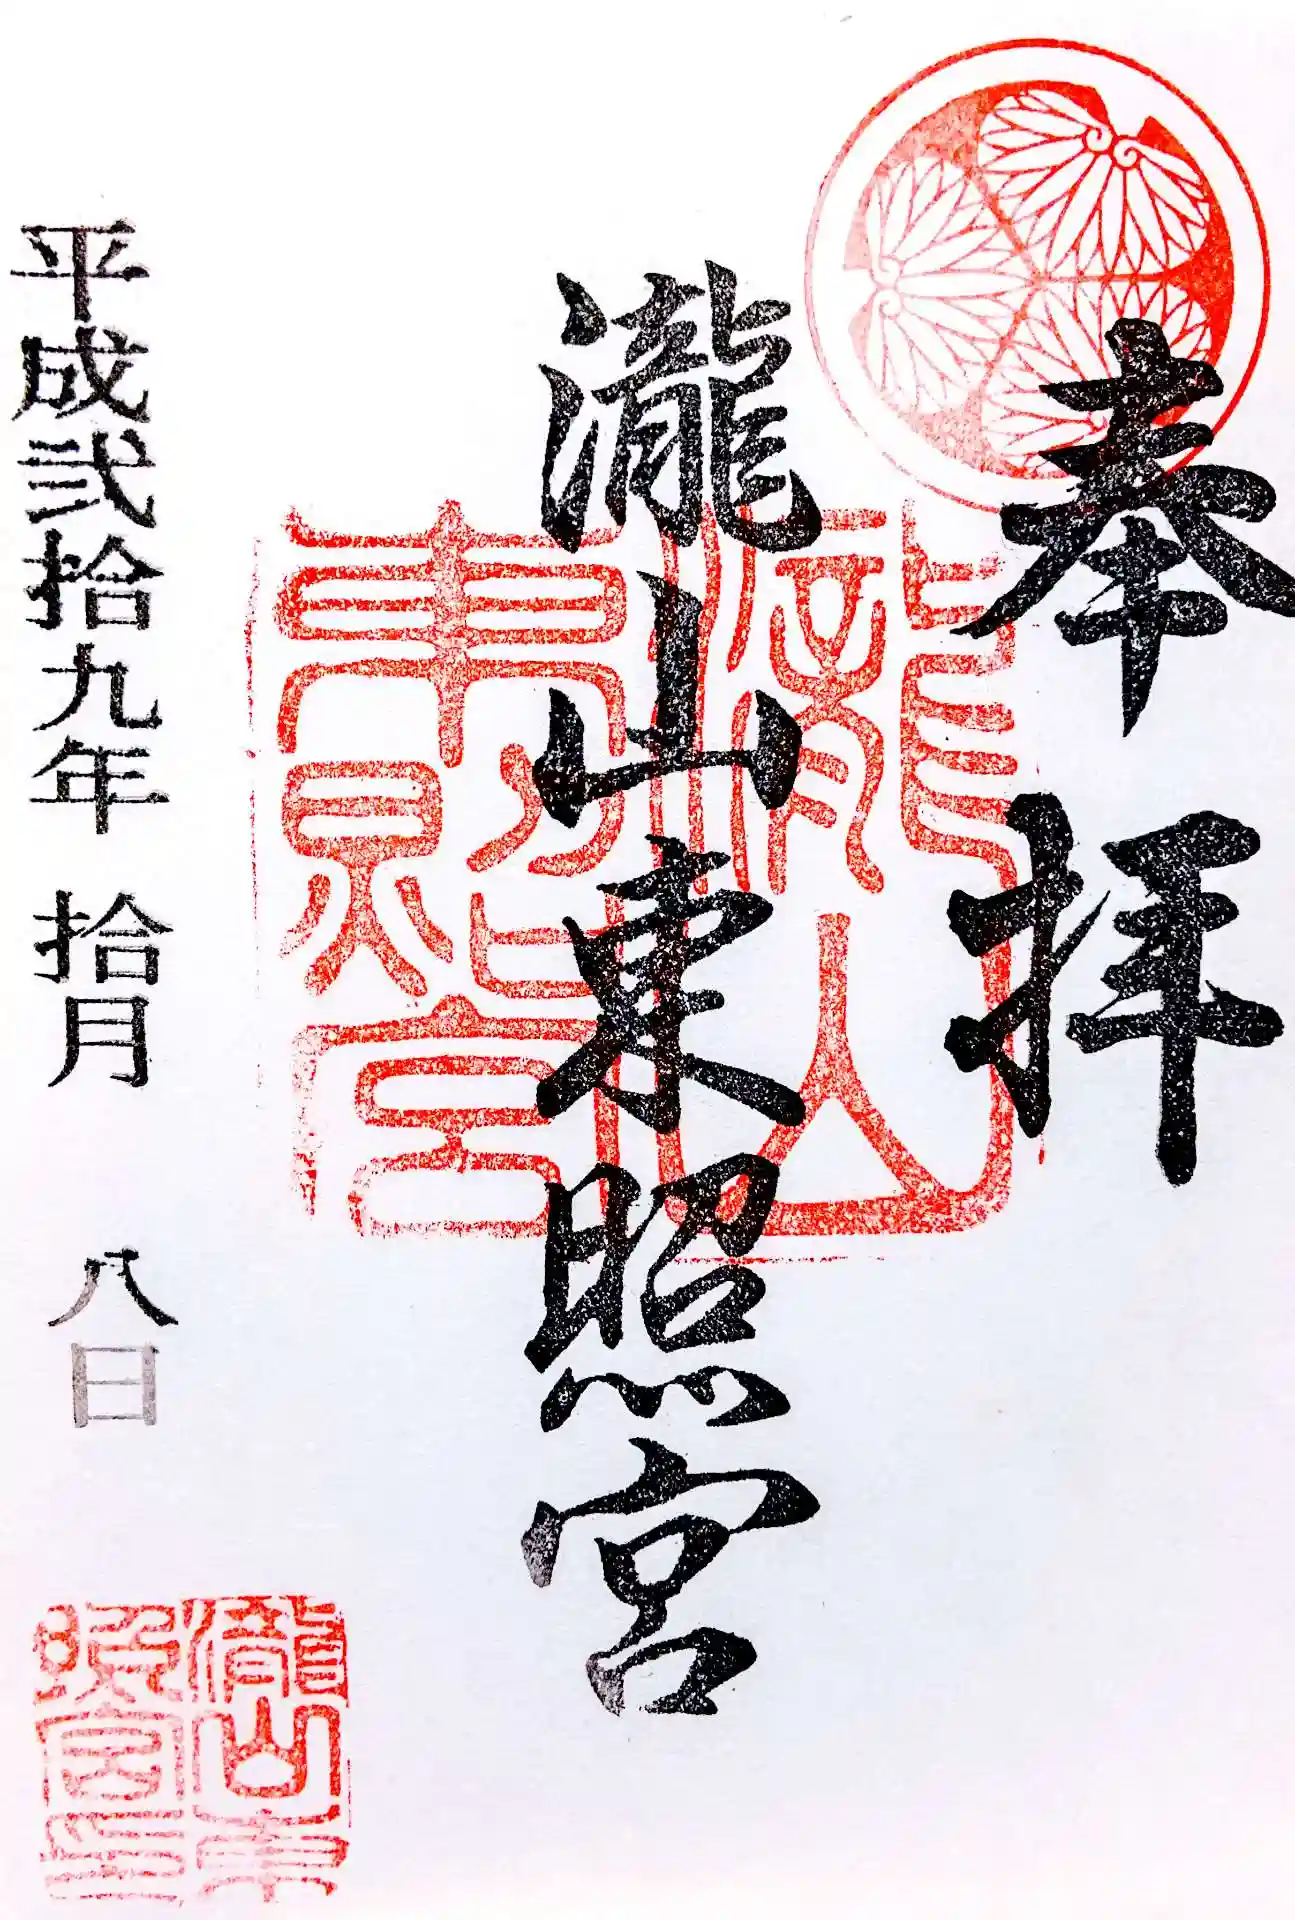 奉拝
瀧山東照宮
瀧山東照宮
平成弐拾九年 拾月 八日
瀧山東照宮印